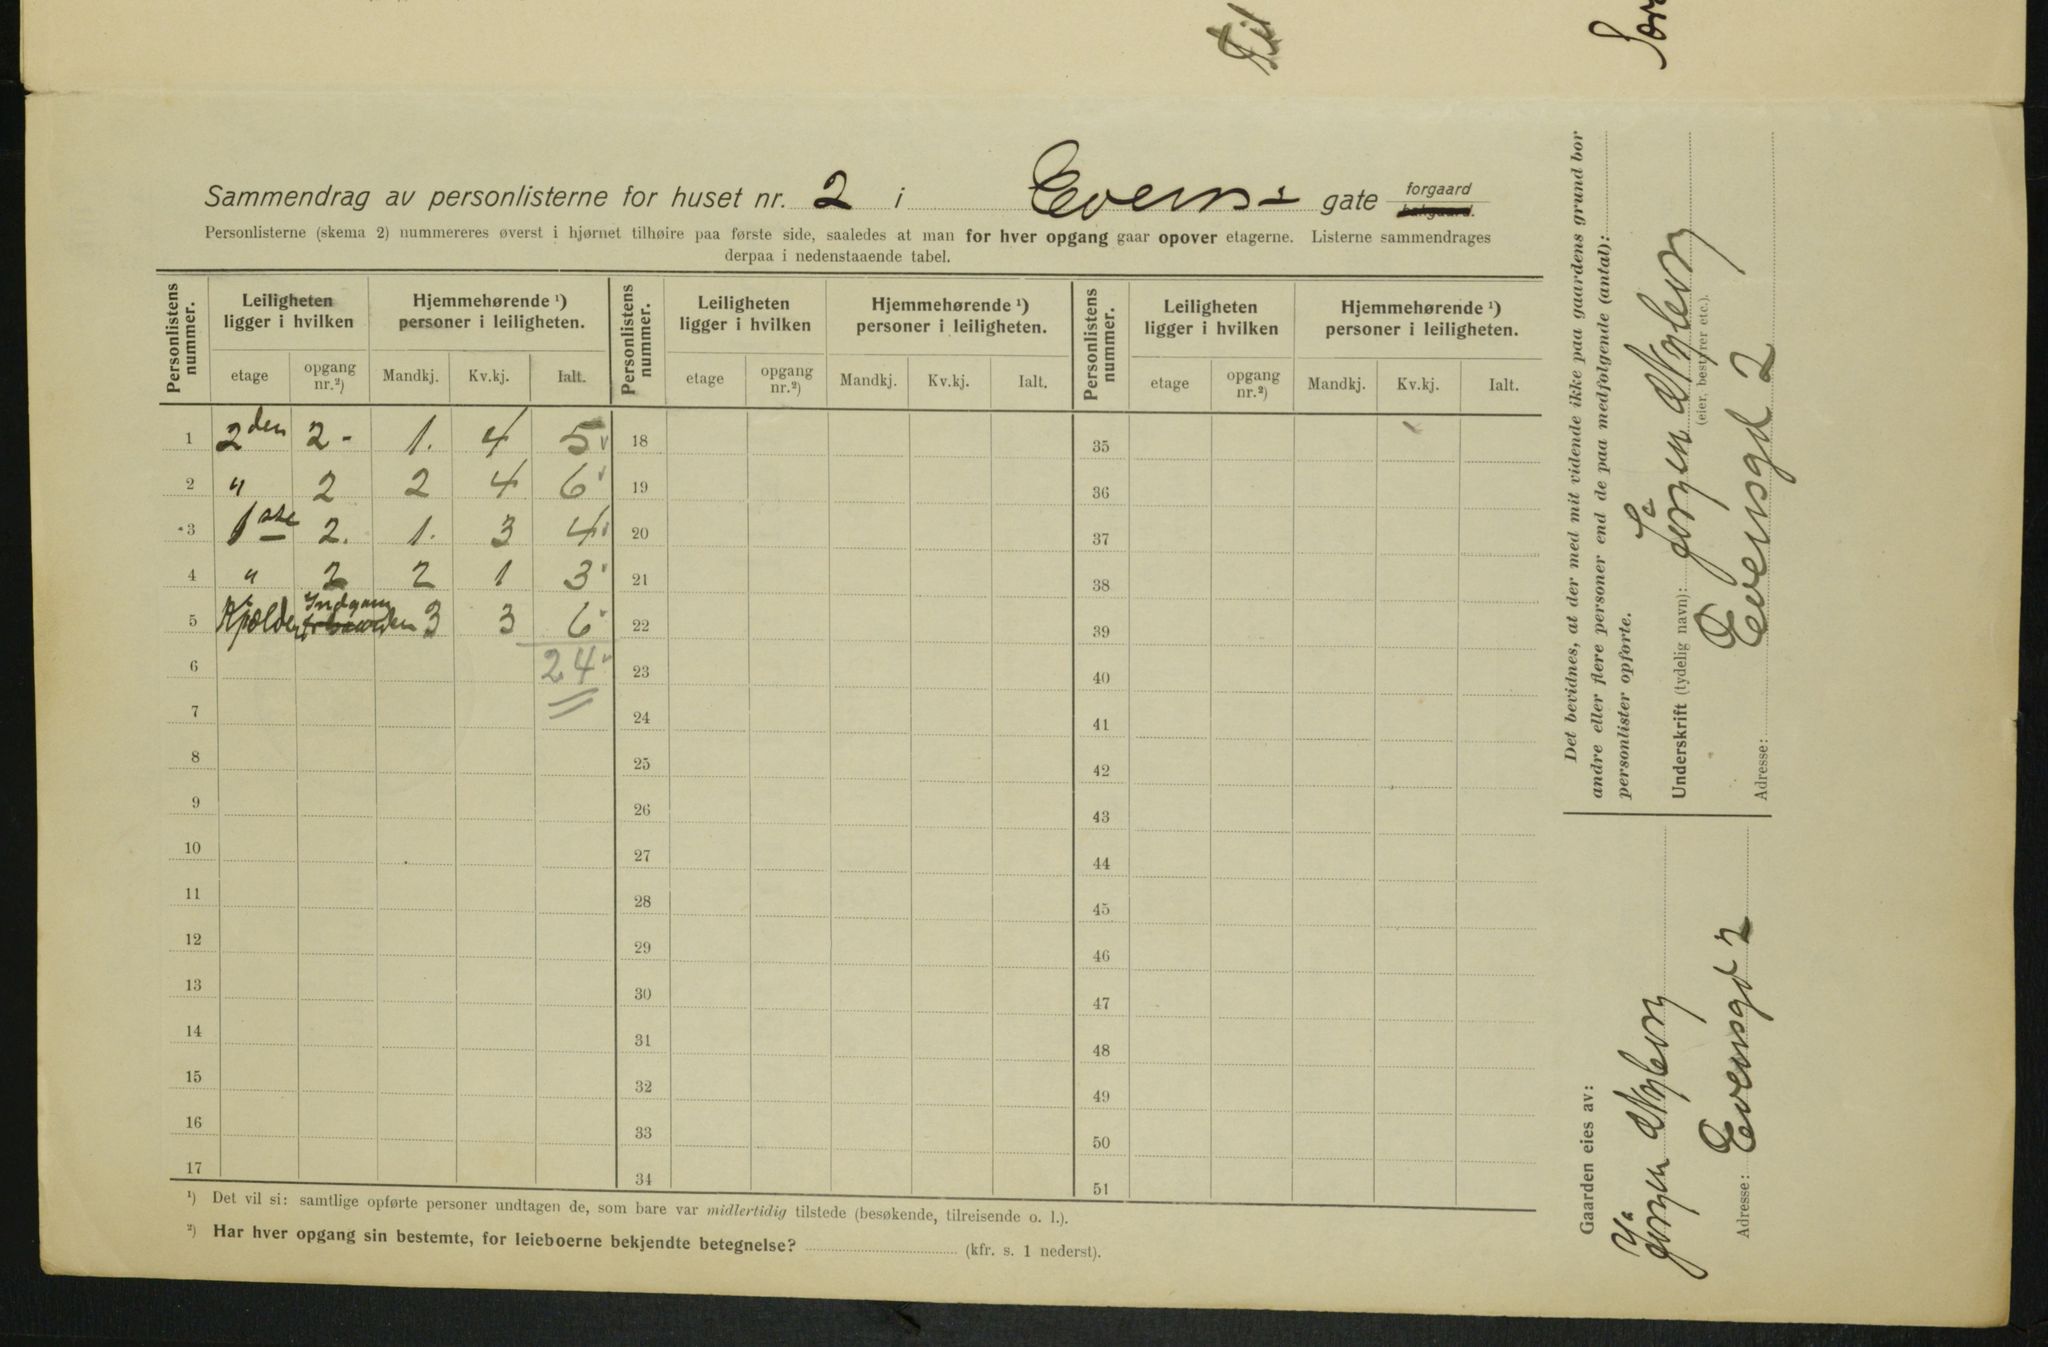 Til
Sammendrag av personlisterne for huset nr. 2 i Evens gate forgaard bakgaard.
Personlisterne (skema 2) nummereres øverst i hjørnet tilhøire paa første side, saaledes at man for hver opgang gaar opover etagerne. Listerne sammendrages
derpaa i nedenstaaende tabel.
Personlistens nummer. Leiligheten ligger i hvilken Hjemmehørende ¹) personer i leiligheten. Personlistens nummer. Leiligheten ligger i hvilken Hjemmehørende ¹) personer i leiligheten. Personlistens nummer. Leiligheten ligger i hvilken Hjemmehørende ¹) personer i leiligheten.
etage opgang nr.²) Mandkj. Kv.kj. Ialt. etage opgang nr.²) Mandkj. Kv.kj. Ialt. etage opgang nr.²) Mandkj. Kv.kj. Ialt.
1 2den 2- 1. 4 5 18 35
2 " 2 2 4 6 19 36
3 1ste 2. 1. 3 4 20 37
4 " 2 2 1 3 21 38
5 Kjælder Indgang 3 3 6 22 39
6 24 23 40
7 24 41
8 25 42
9 26 43
10 27 44
11 28 45
12 29 46
13 30 47
14 31 48
15 32 49
16 33 50
17 34 51
¹) Det vil si: samtlige opførte personer undtagen de, som bare var midlertidig tilstede (besøkende, tilreisende o. l.).
²) Har hver opgang sin bestemte, for leieboerne bekjendte betegnelse? (kfr. s. 1 nederst).
Det bevidnes, at der med mit vidende ikke paa gaardens grund bor
andre eller flere personer end de paa medfølgende (antal):
personlister opførte.
Underskrift (tydelig navn): Jørgen
(eier, bestyrer etc.).
Evensgd 2
Adresse:
Gaarden eies av:
Jørgen
Adresse: Evensgd 2